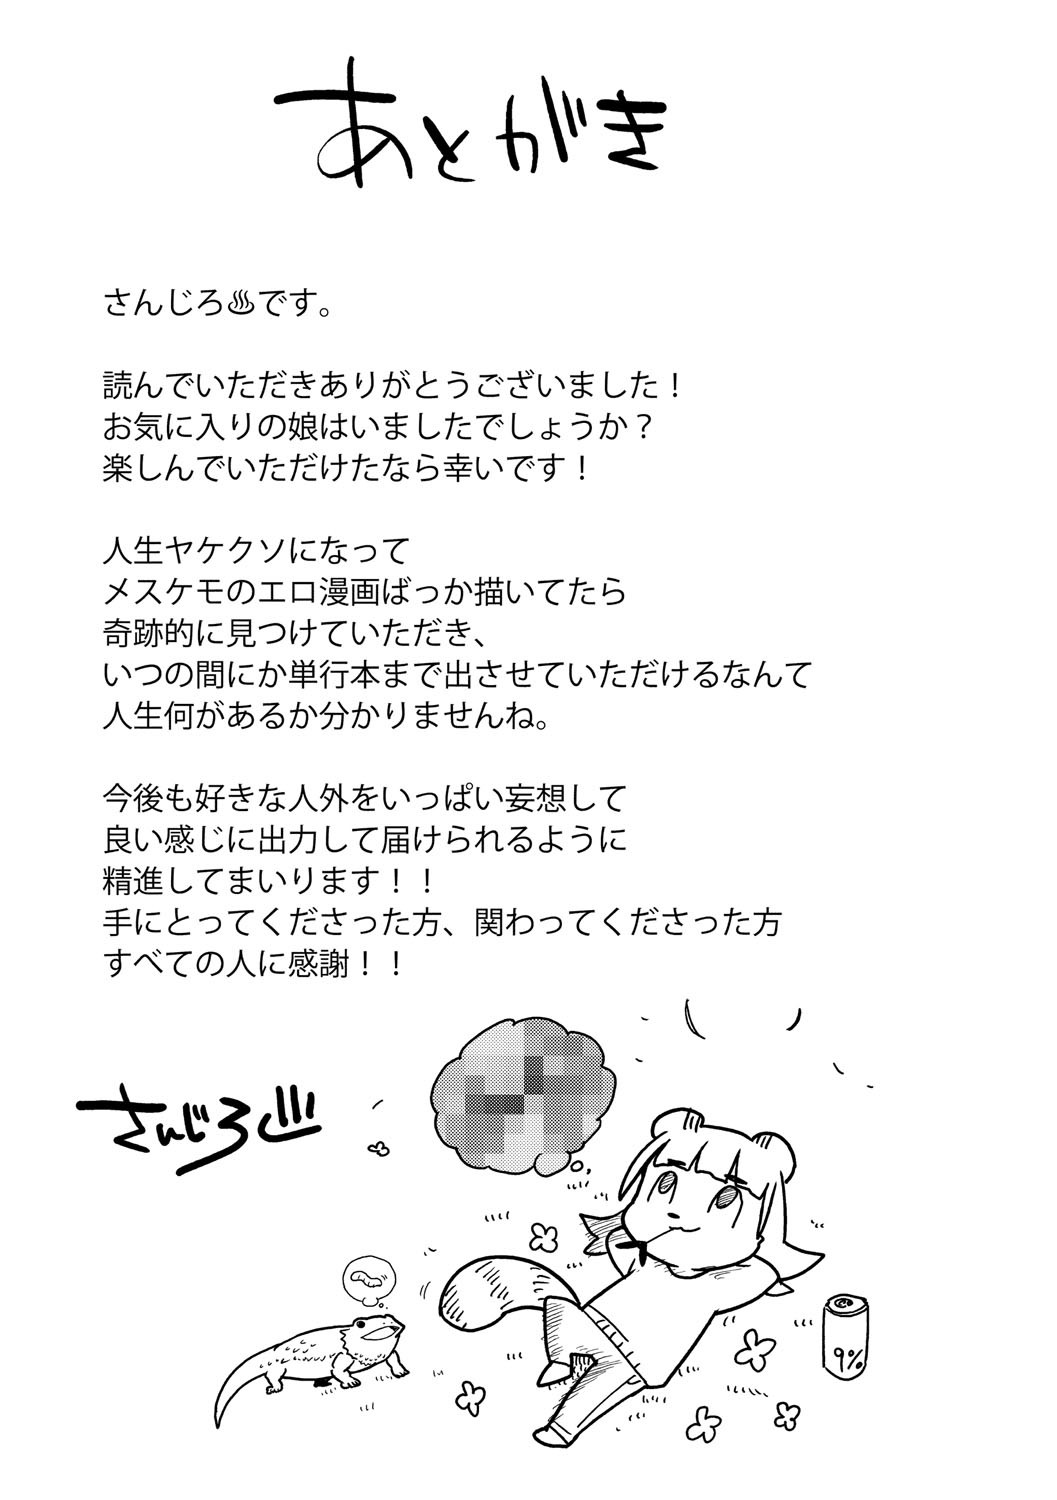 あとがき
さんじろ♨です。
読んでいただきありがとうございました！
お気に入りの娘はいましたでしょうか？
楽しんでいただけたなら幸いです！
人生ヤケクソになって
メスケモのエロ漫画ばっか描いてたら
奇跡的に見つけていただき、
いつの間にか単行本まで出させていただけるなんて
人生何があるか分かりませんね。
今後も好きな人外をいっぱい妄想して
良い感じに出力して届けられるように
精進してまいります！！
手にとってくださった方、関わってくださった方
すべての人に感謝！！
さんじろ♨
9%